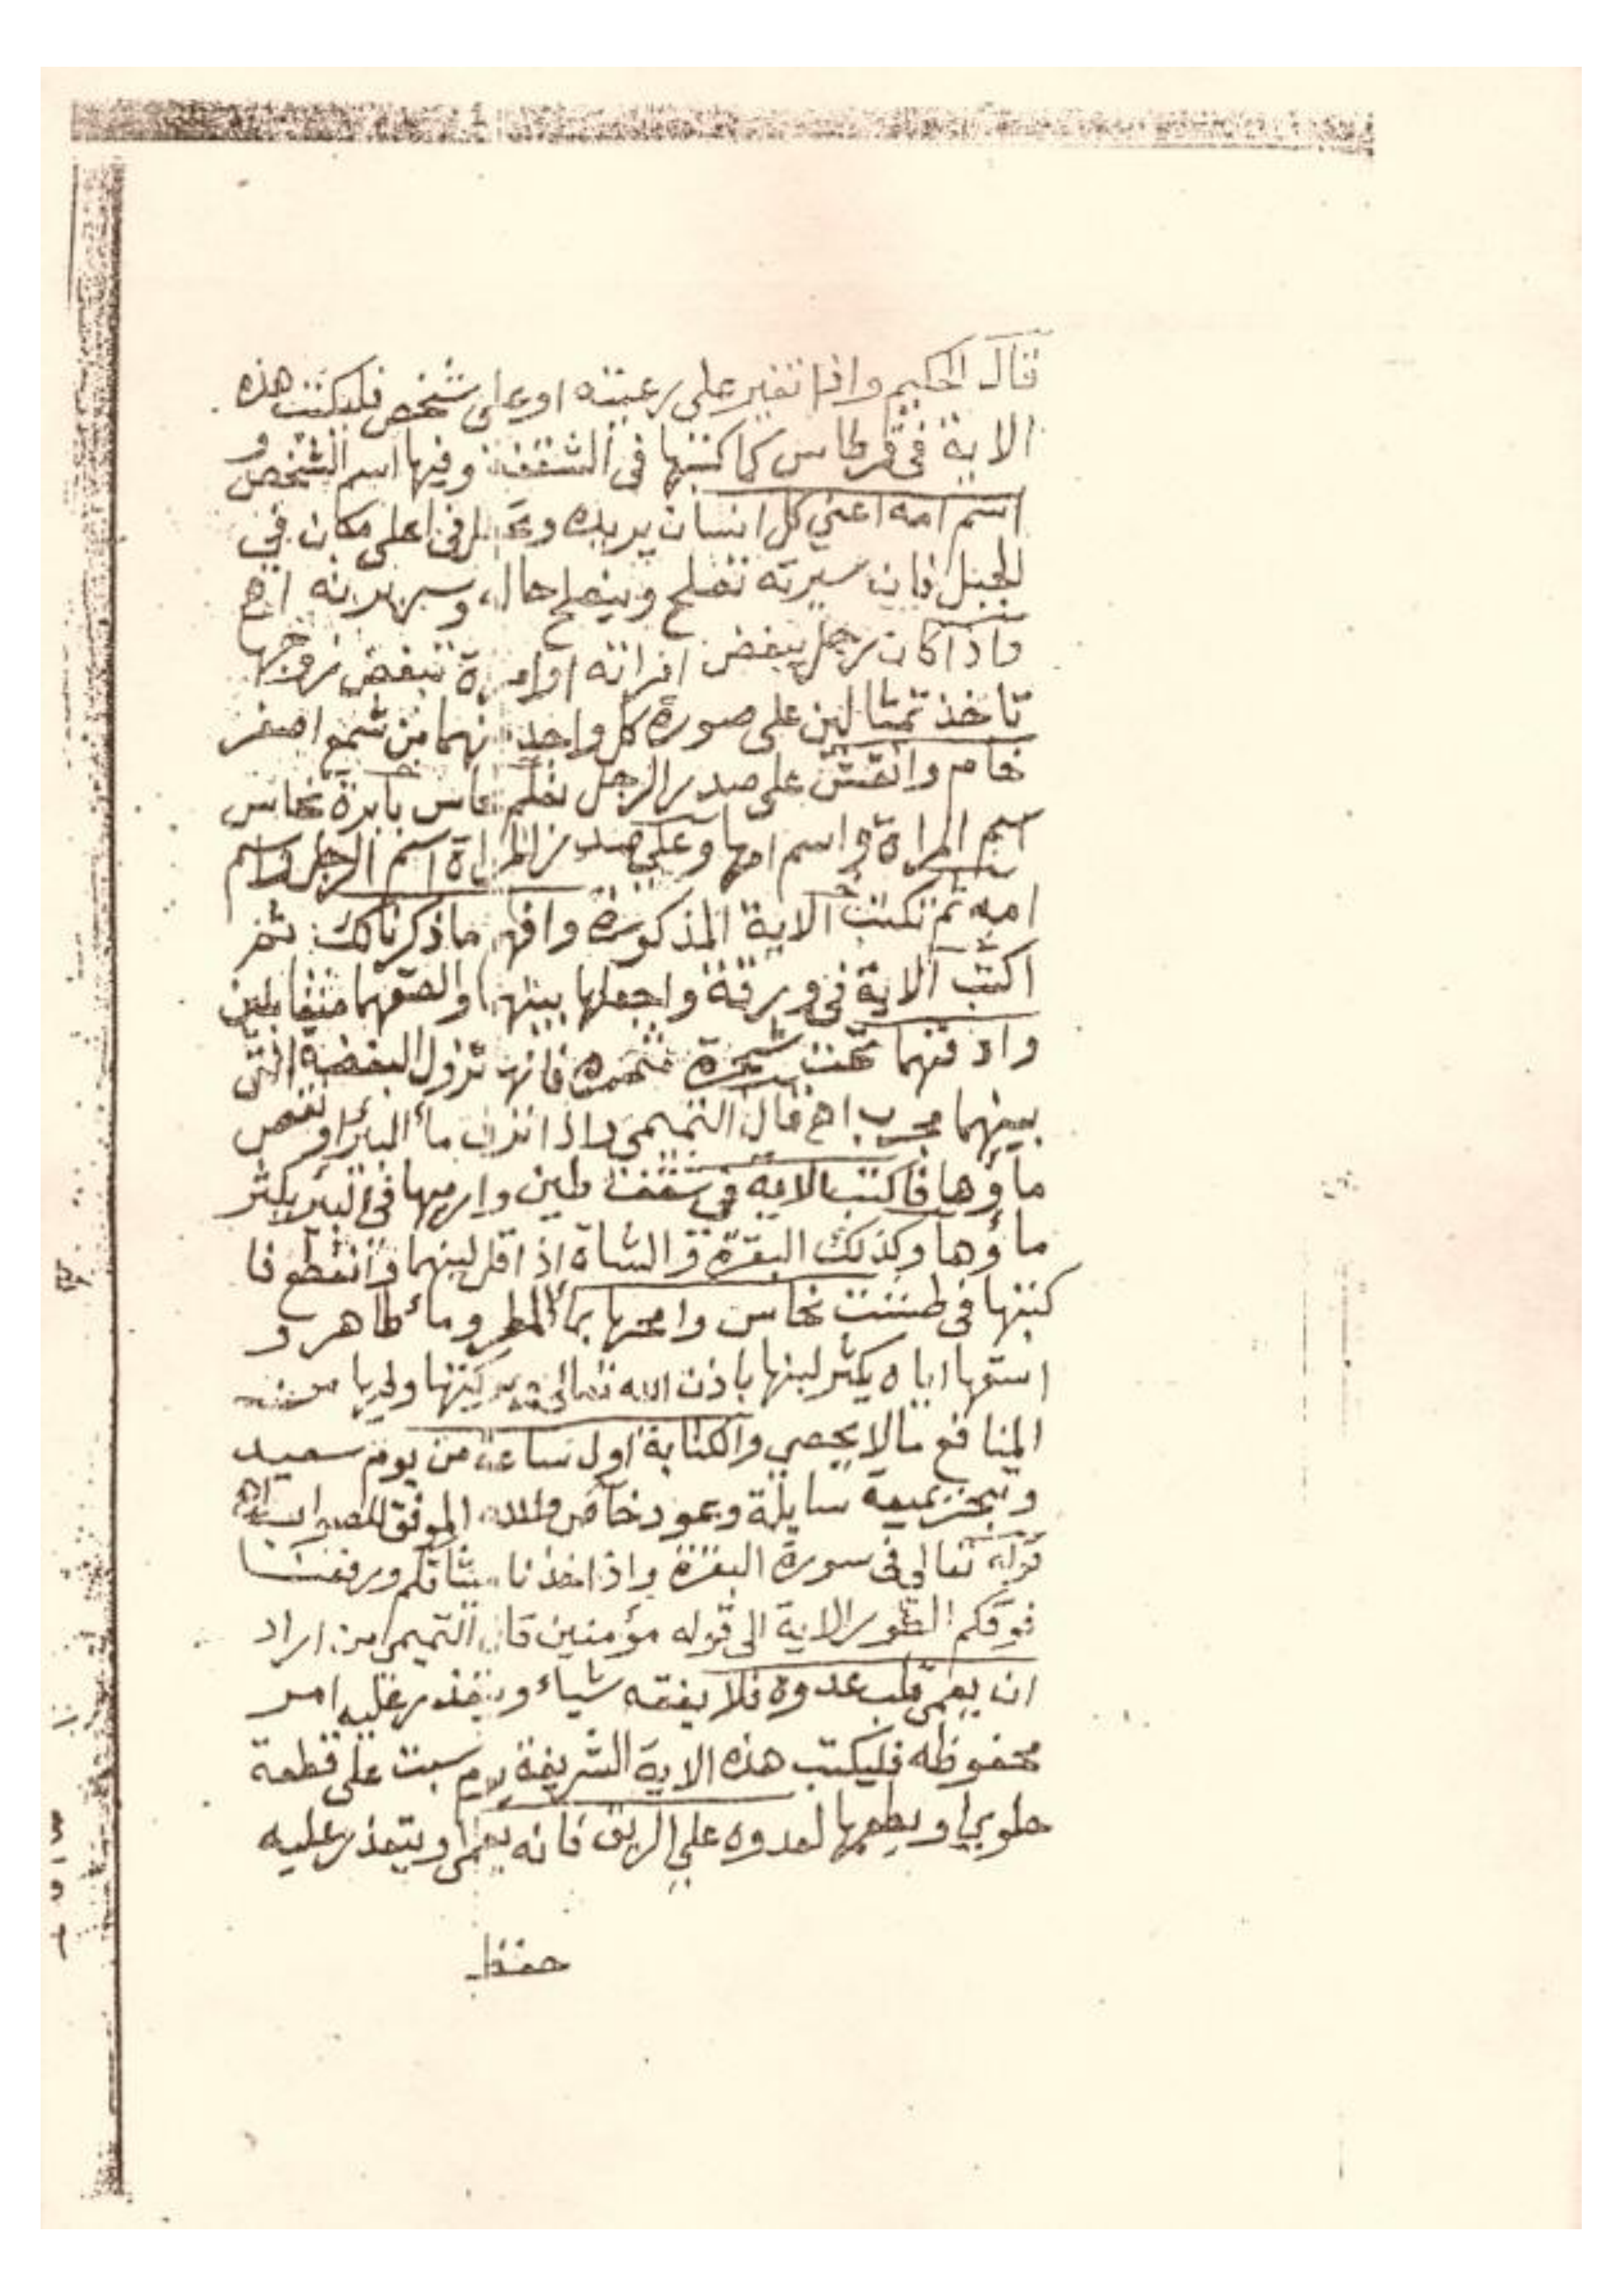 قال الحكيم واذا تغير على رعيته او على شخص فليكتب هذه
الاية في قرطاس كما كتبتها في الشقفة وفيها اسم الشخص و
اسم امه اعني كل انسان يريده في اعلى مكان في
الجبل فان سيرته تصلح وينصلح حاله اهـ
واذا كان رجل يبغض امراته او امرة تبغض زوجها
تاخذ تمثالين على صورة كل واحد منهما من شمع اصفر
خام وانقش على صدر الرجل بقلم نحاس بابرة نحاس
اسم المراة واسم امها وعلى صدر المراة اسم الرجل واسم
امه ثم تكتب الاية المذكورة وافهم ما ذكرنا لك ثم
اكتب الاية في ورقة واجعلها بينهما والصقهما متقابلين
وادفنهما تحت شجرة مثمره فانه تزول البغضة التي
بينهما مجرب اهـ قال التميمي واذا نزف ماء البئر او نقص
ماؤها فاكتب الاية في شقفة طين وارميها في البئر يكثر
ماؤها وكذلك البقرة والشاة اذا قل لبنهما وانقطع فا
كتبها في طشت نحاس وامحها بماء المطر وماء طاهر و
اسقها اياه يكثر لبنها باذن الله تعالى من
المنافع مالا يحصي والكتابة اول ساعة من يوم سعيد
وتبخر بميعة سايلة وعود خاص والله الموفق للصواب اهـ
قوله تعالى في سورة البقرة واذا اخذنا ميثاقكم ورفعنا
فوقكم الطور الاية الى قوله مؤمنين قال التميمي من اراد
ان يعمي قلب عدوه فلا يفقه شياء ويتعذر عليه امر
محفوظه فليكتب هذه الاية الشريفة يوم سبت على قطعة
حلوي ويطعمها لعدوه على الريق فانه يعمى ويتعذر عليه
حفظ